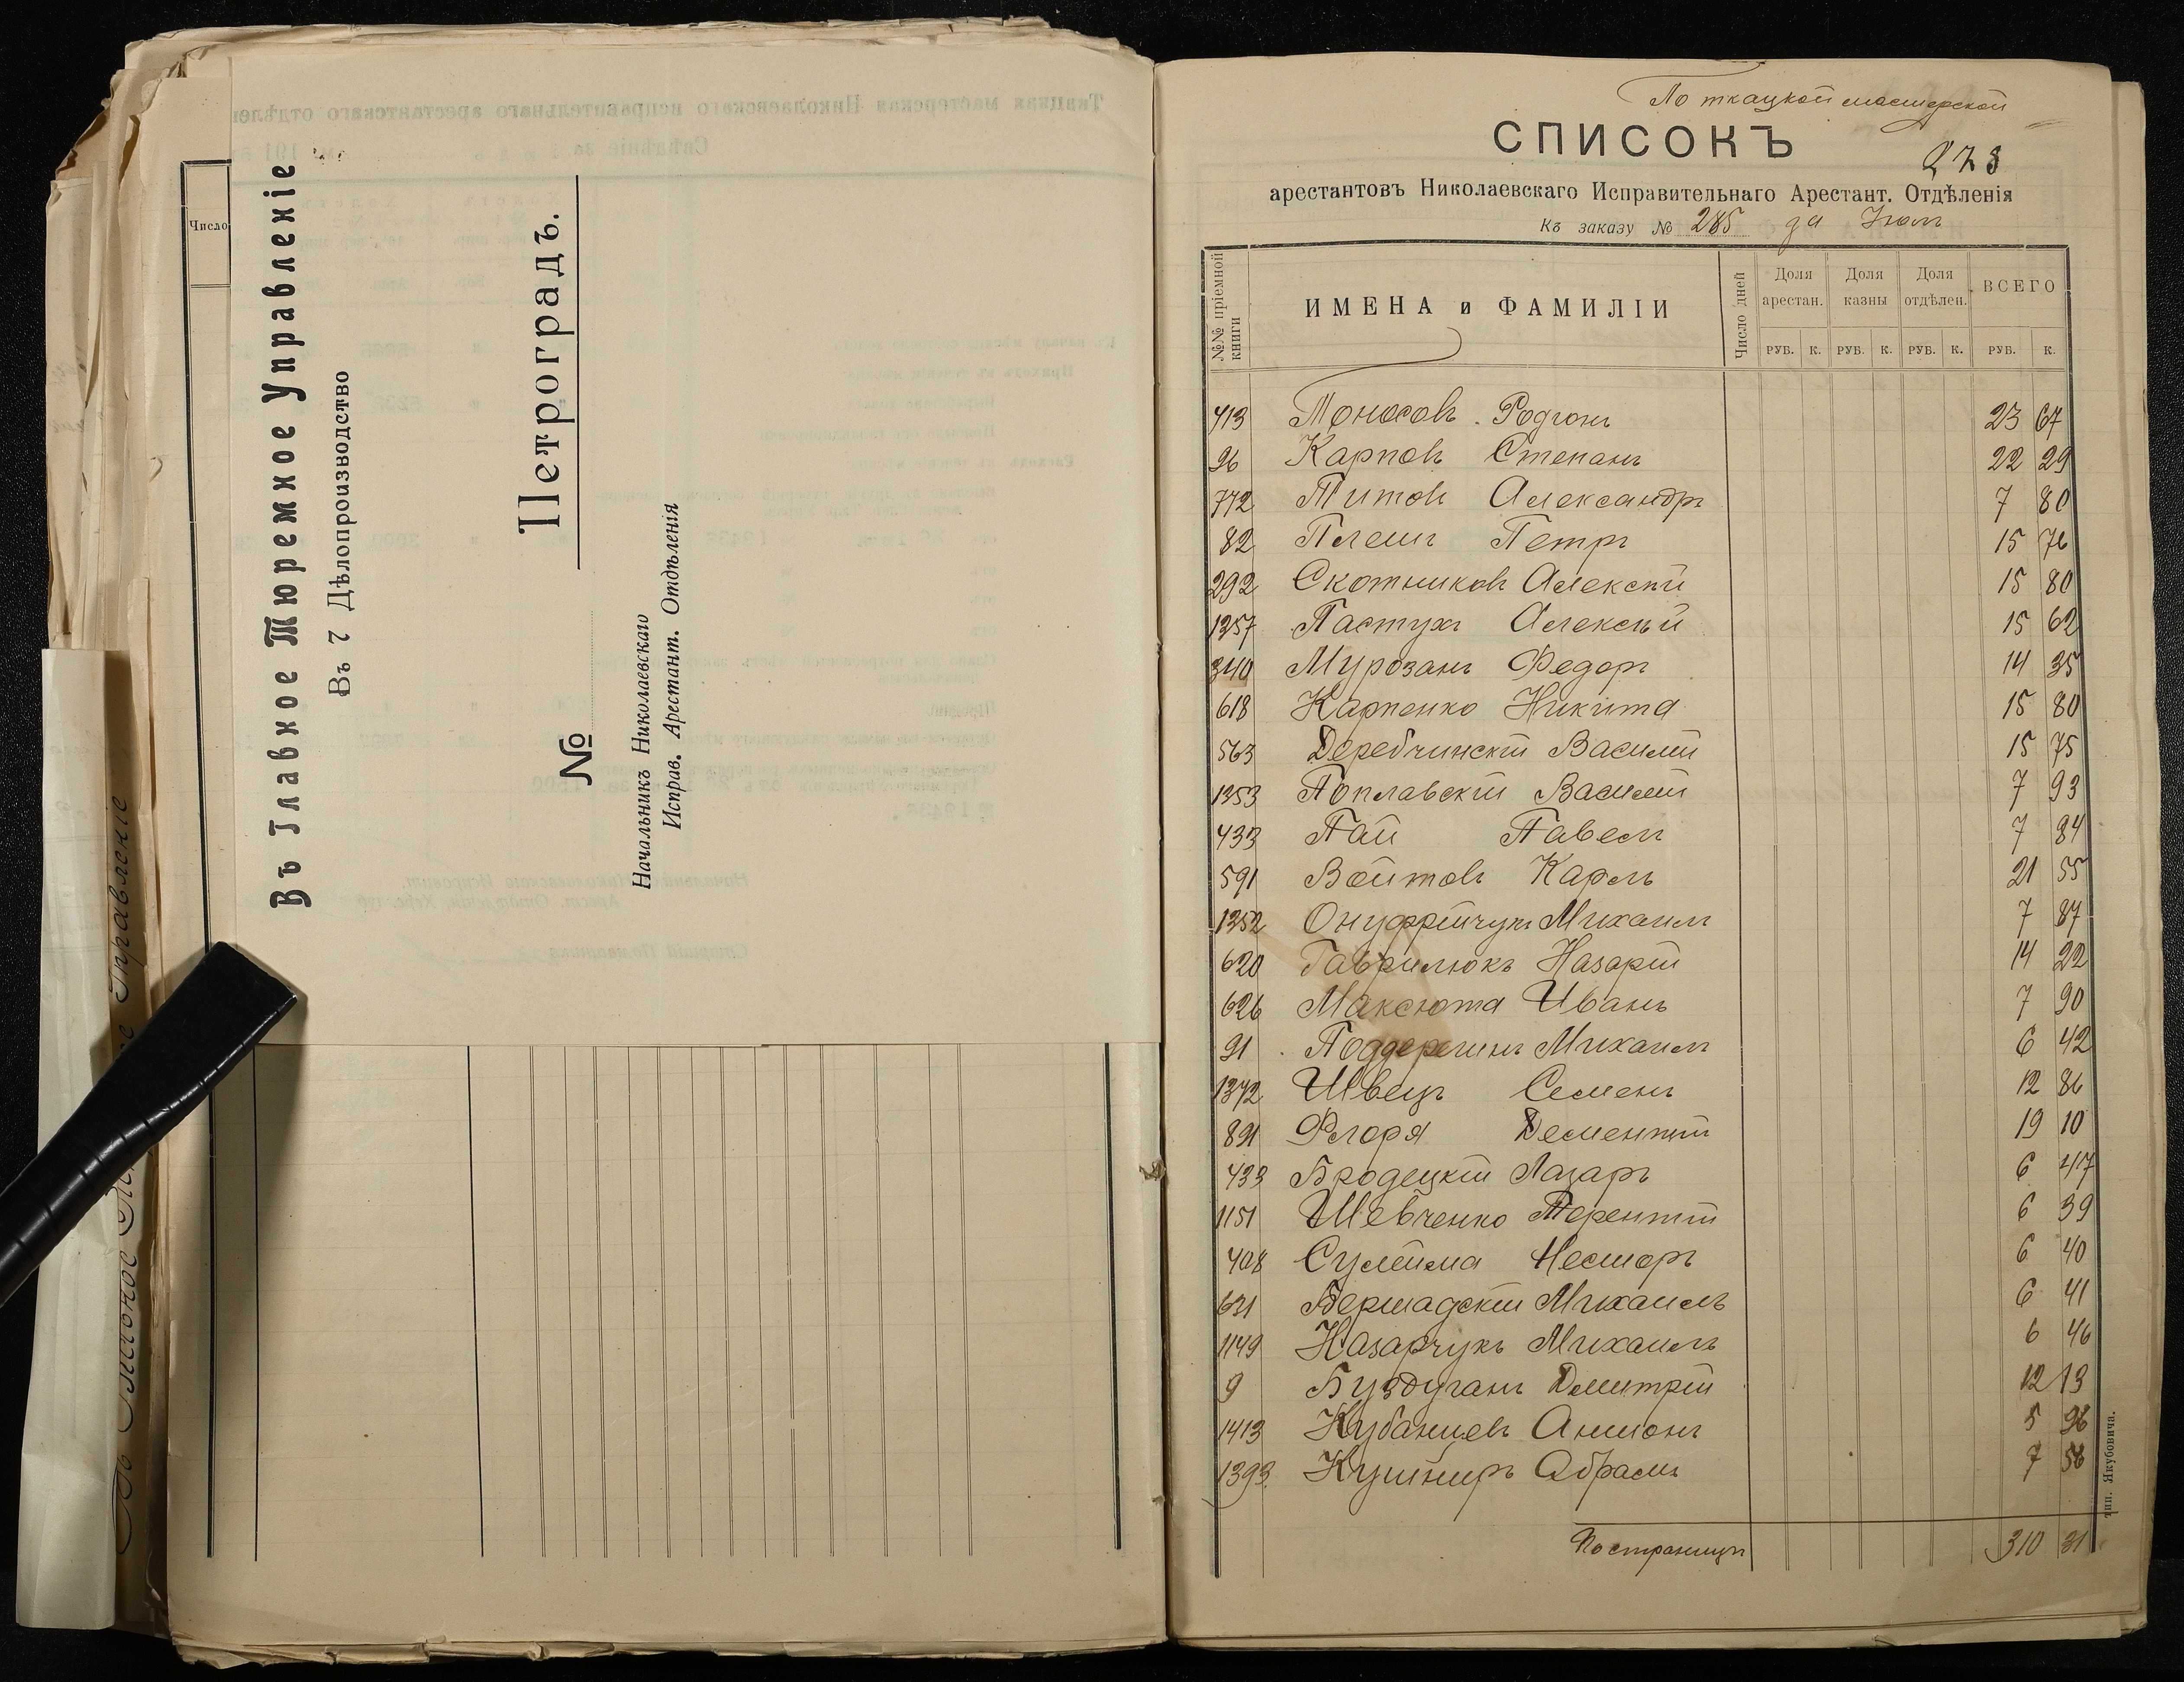 Число
Въ Главное Тюремное Управленіе
Въ 7 Дѣлопроизводство
Петроградъ.
№
Начальникъ Николаевскаго
Исправ. Арестант. Отдѣленія
По ткацкой мастерской
СПИСОКЪ
273
арестантовъ Николаевскаго Исправительнаго Арестант. Отдѣленія
Къ заказу № 285 за Іюль
№№ пріемной книги ИМЕНА и ФАМИЛІИ Число дней Доля арестан. Доля казны Доля отдѣлен. ВСЕГО
РУБ. К. РУБ. К. РУБ. К. РУБ. К.
413 Тоносовъ Родіонъ 23 67
96 Карповъ Степанъ 22 29
772 Титовъ Александръ 7 80
82 Плешъ Петръ 15 76
292 Скотниковъ Алексѣй 15 80
1357 Пастухъ Алексѣй 15 62
340 Мурозанъ Федоръ 14 35
618 Карпенко Никита 15 80
563 Деребчинскій Василій 15 75
1353 Поплавскій Василій 7 93
433 Пай Павелъ 7 84
591 Войтовъ Карлъ 21 55
1352 Онуфрійчукъ Михаилъ 7 87
620 Гаврилюкъ Назарій 14 22
626 Максюта Иванъ 7 90
91 Поддерегинъ Михаилъ 6 42
1372 Швецъ Семенъ 12 86
891 Флоря Дементій 19 10
433 Бродецкій Лазарь 6 47
1151 Шевченко Терентій 6 39
408 Сулейма Несторъ 6 40
631 Бершадскій Михаилъ 6 41
1149 Назарчукъ Михаилъ 6 46
9 Буздуганъ Дмитрій 12 13
1413 Кубанцевъ Антонъ 5 98
1393 Кушниръ Абрамъ 7 58
По страницѣ 310 31
тип. Якубовича.